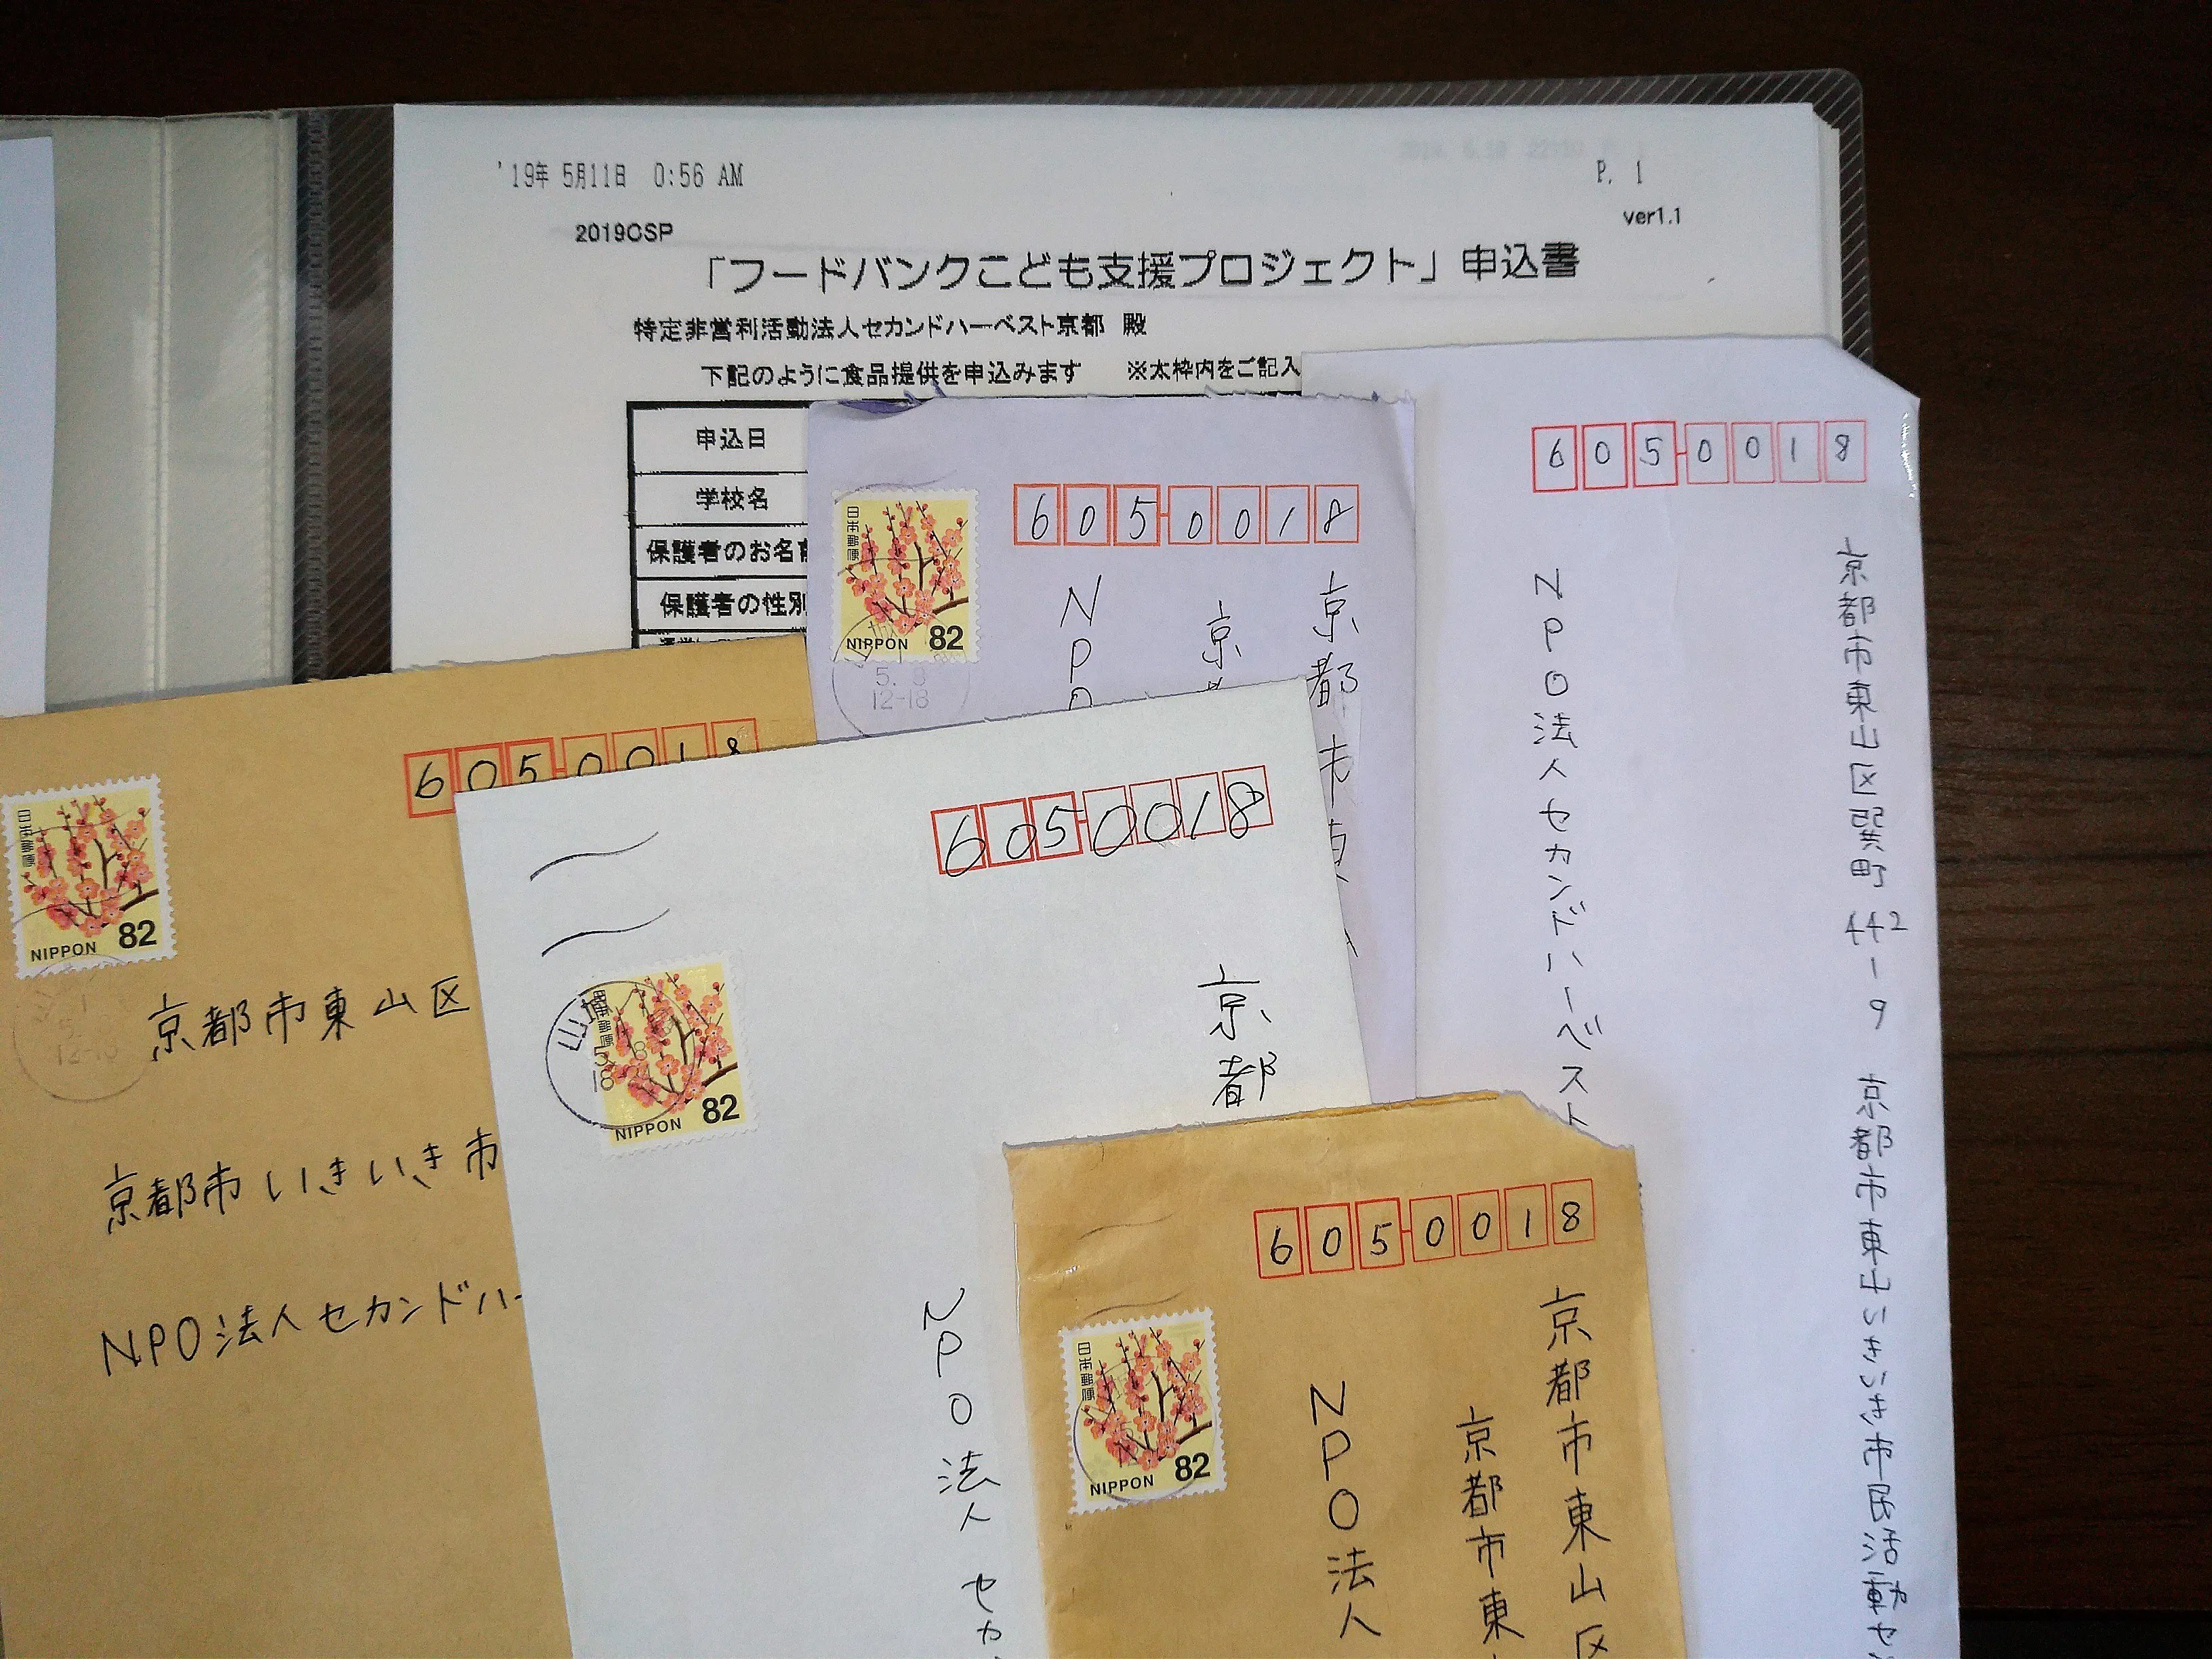 '19年 5月11日 0:56 AM
P. 1
ver1.1
2019CSP
「フードバンクこども支援プロジェクト」申込書
特定非営利活動法人セカンドハーベスト京都 殿
下記のように食品提供を申込みます ※太枠内をご記入
申込日
学校名
保護者のお名
保護者の性別
6050018
京都市東山区巽町442-9 京都市東山いきいき市民活動セ
NPO法人セカンドハーベスト
6050018
日本郵便
NIPPON 82
5. 9
12-18
京都市東
京
NPO
6050018
日本郵便
NIPPON 82
12-18
京都市東山区
京都市いきいき市
NPO法人セカンドハー
6050018
日本郵便
NIPPON 82
山城
京都
NPO法人 セカ
6050018
日本郵便
NIPPON 82
京都市東山区
京都市東
NPO法人